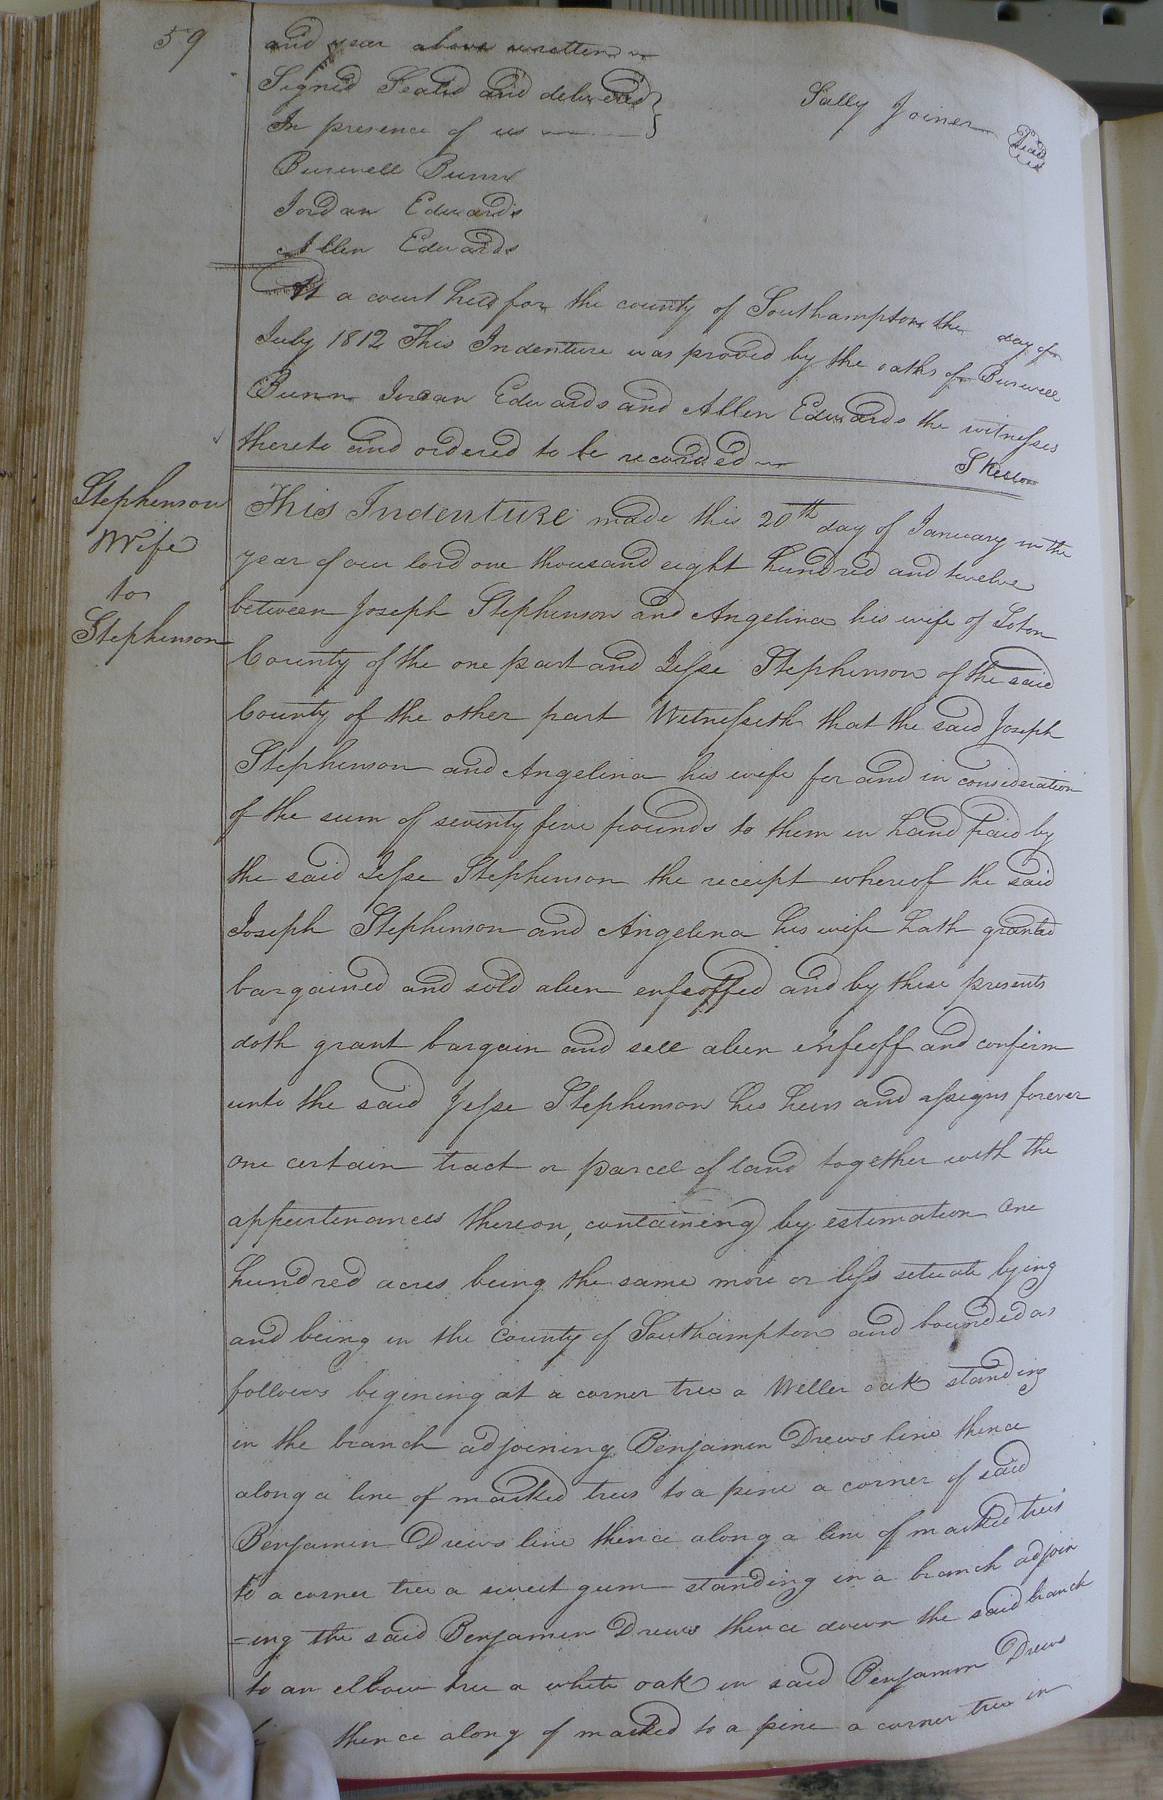 59
and year above written
Signed Sealed and delivered }
In presence of us }
Sally Joiner Seal
Burwell Bunn
Jordan Edwards
Allen Edwards
At a court held for the county of Southampton the day of
July 1812 This Indenture was proved by the oaths of Burwell
Bunn Jordan Edwards and Allen Edwards the witnesses
thereto and ordered to be recorded
Stephenson
Wife
to
Stephenson
This Indenture made this 20th day of January in the
year of our lord one thousand eight hundred and twelve
between Joseph Stephenson and Angelina his wife of Soton
County of the one part and Jesse Stephenson of the said
County of the other part Witnesseth that the said Joseph
Stephenson and Angelina his wife for and in consideration
of the sum of seventy five pounds to them in hand paid by
the said Jesse Stephenson the receipt whereof the said
Joseph Stephenson and Angelina his wife hath granted
bargained and sold alien enfeoffed and by these presents
doth grant bargain and sell alien enfeoff and confirm
unto the said Jesse Stephenson his heirs and assigns forever
one certain tract or parcel of land together with the
appurtenances thereon, containing by estimation One
hundred acres being the same more or less situate lying
and being in the County of Southampton and bounded as
follows begining at a corner tree a Weller oak standing
in the branch adjoining Benjamin Drews line thence
along a line of marked trees to a pine a corner of said
Benjamin Drews line thence along a line of marked trees
to a corner tree a sweet gum standing in a branch adjoin
=ing the said Benjamin Drews thence down the said branch
to an elbow tree a white oak in said Benjamin Drews
thence along of marked to a pine a corner tree in